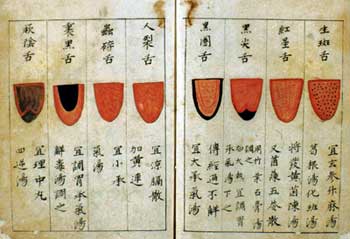 生斑舌
宜玄參升麻湯
葛根湯化斑湯
紅星舌
將發黃茵陳湯
又茵陳五苓散
黑尖舌
用竹葉石膏湯
調之
如大熱宜調胃
承氣湯下之
黑圈舌
傳經過不解
宜大承氣湯
人裂舌
宜涼膈散
加黃連
蟲碎舌
宜小承
氣湯
裏黑舌
宜調胃承氣湯
解毒湯調之
厥陰舌
宜理中丸
四逆湯